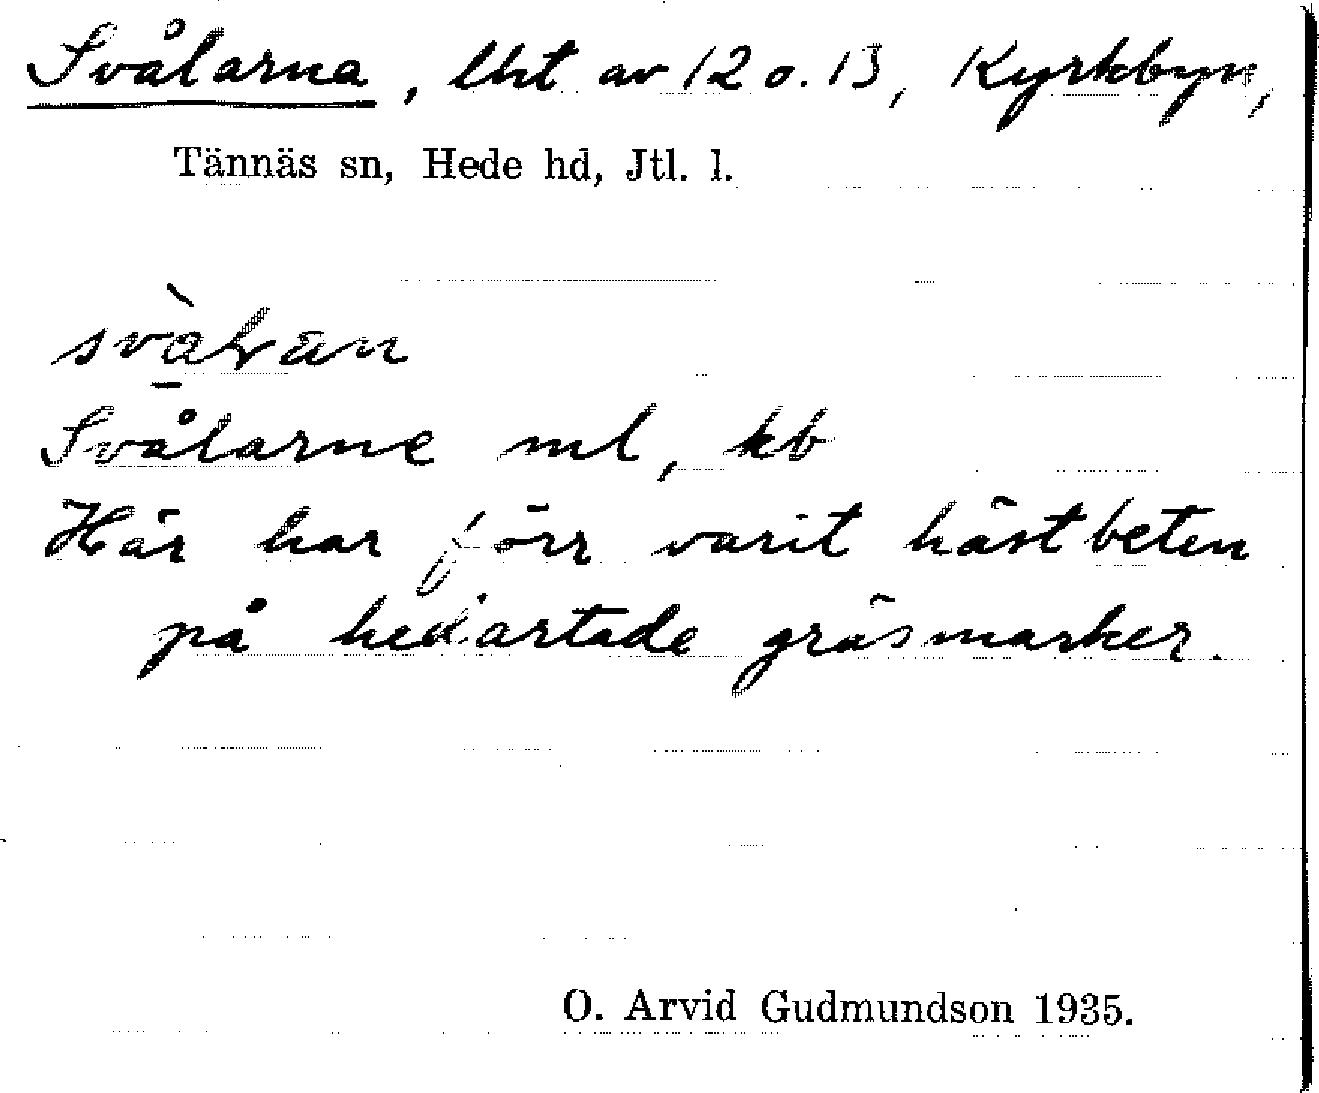 Svålarna, lht av 12 o. 13, Kyrkbyn,
Tännäs sn, Hede hd, Jtl. l.
Svålarne ml, kb
Här har förr varit hästbeten
på hedartade gräsmarker.
O. Arvid Gudmundson 1935.